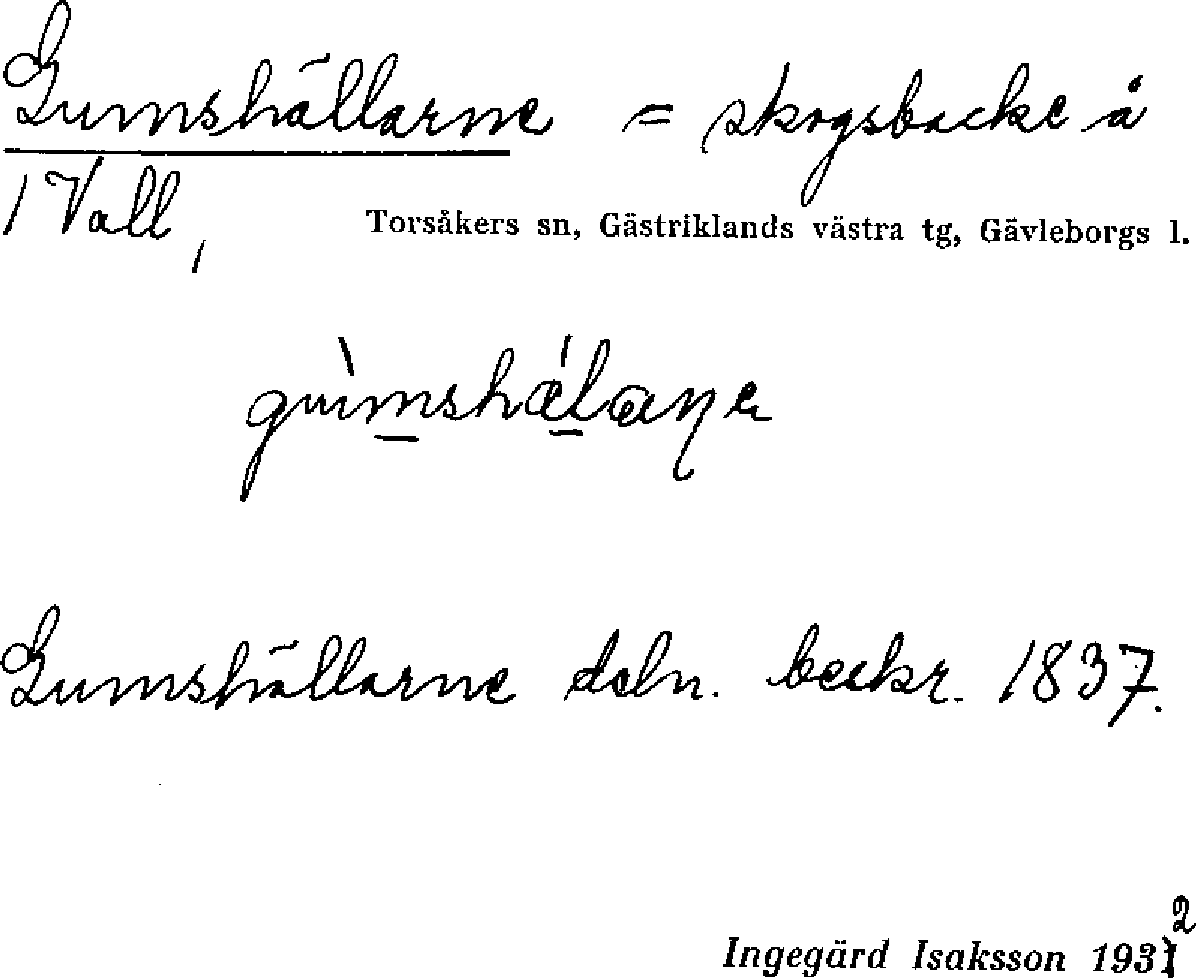 Gumshällarne = skogsbacke å
1 Vall,
Torsåkers sn, Gästriklands västra tg, Gävleborgs l.
gùmshǽlaṇe
Gumshällarne deln. beskr. 1837.
Ingegärd Isaksson 1932